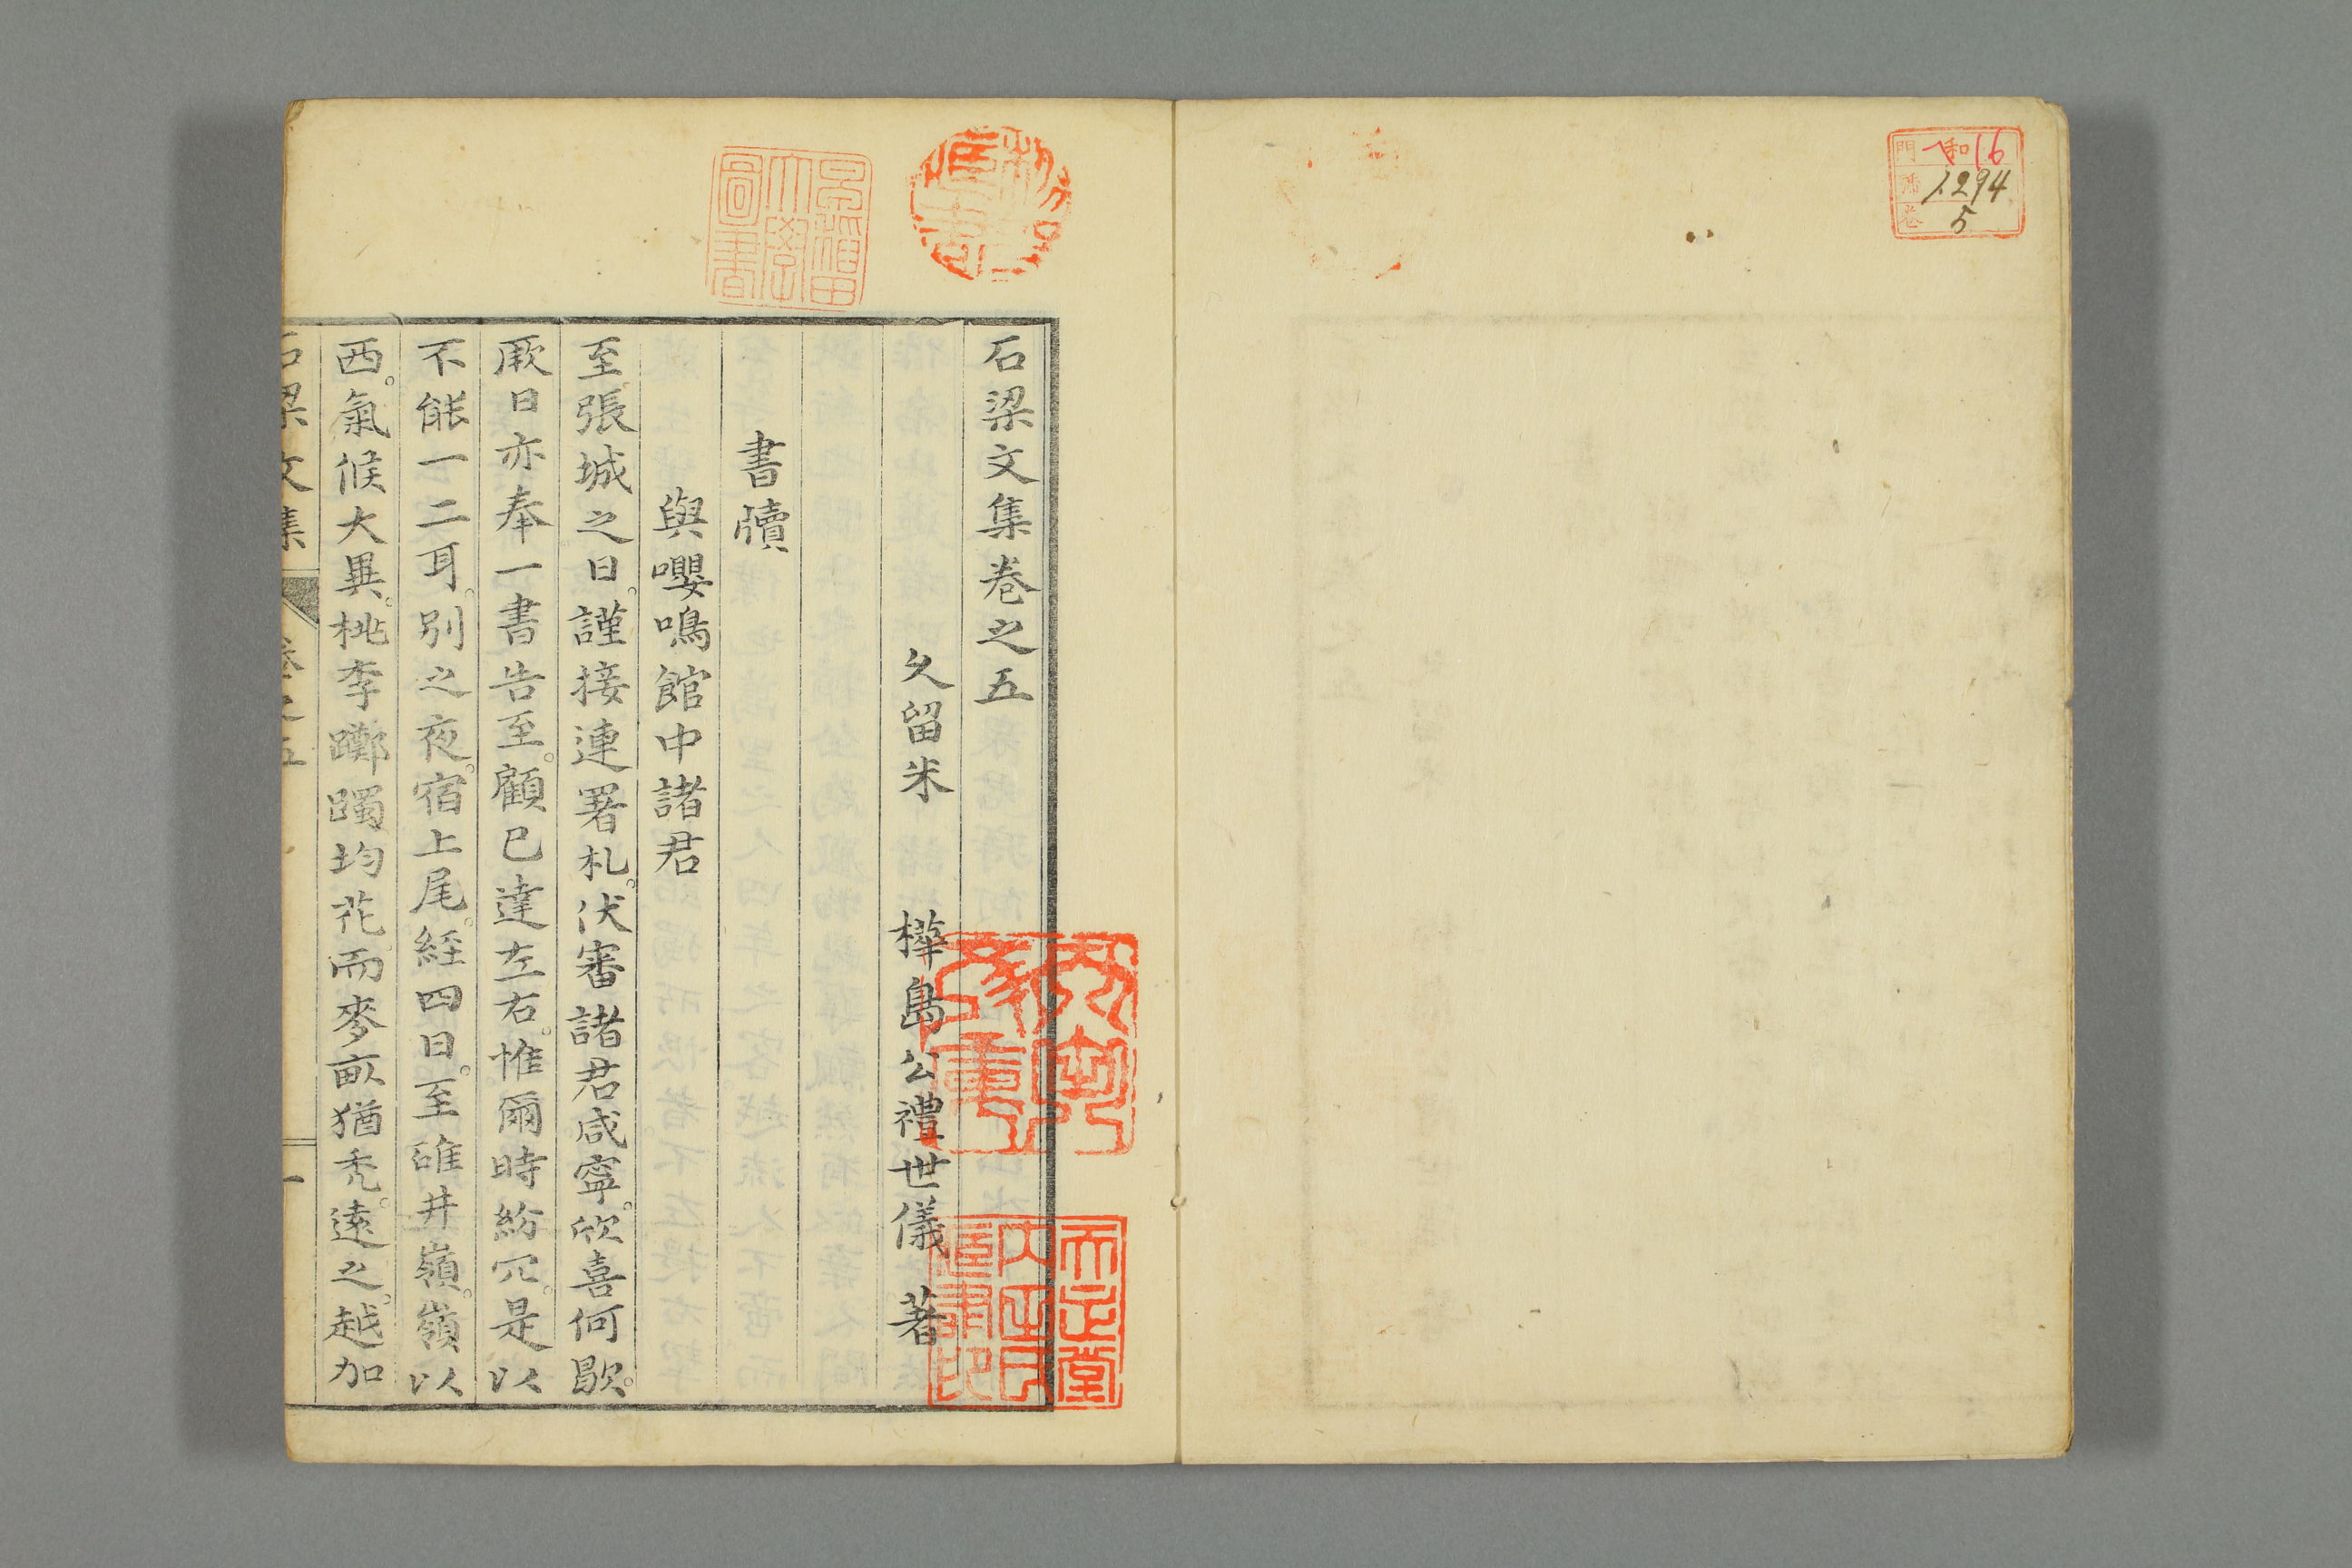 門 和16
1294
5
石梁文集卷之五
久留米 樺島公禮世儀 著
書牘
與嚶鳴館中諸君
至張城之日。謹接連署札。伏審諸君咸寧。欣喜何歇。
厥日亦奉一書告至。顧已達左右。惟爾時紛冗。是以
不能一二耳。別之夜。宿上尾。經四日。至碓井嶺。嶺以
西。氣候大異。桃李躑躅均花。而麥畝猶禿。遠之。越加
石梁文集 卷之五 一
早稲田大學圖書